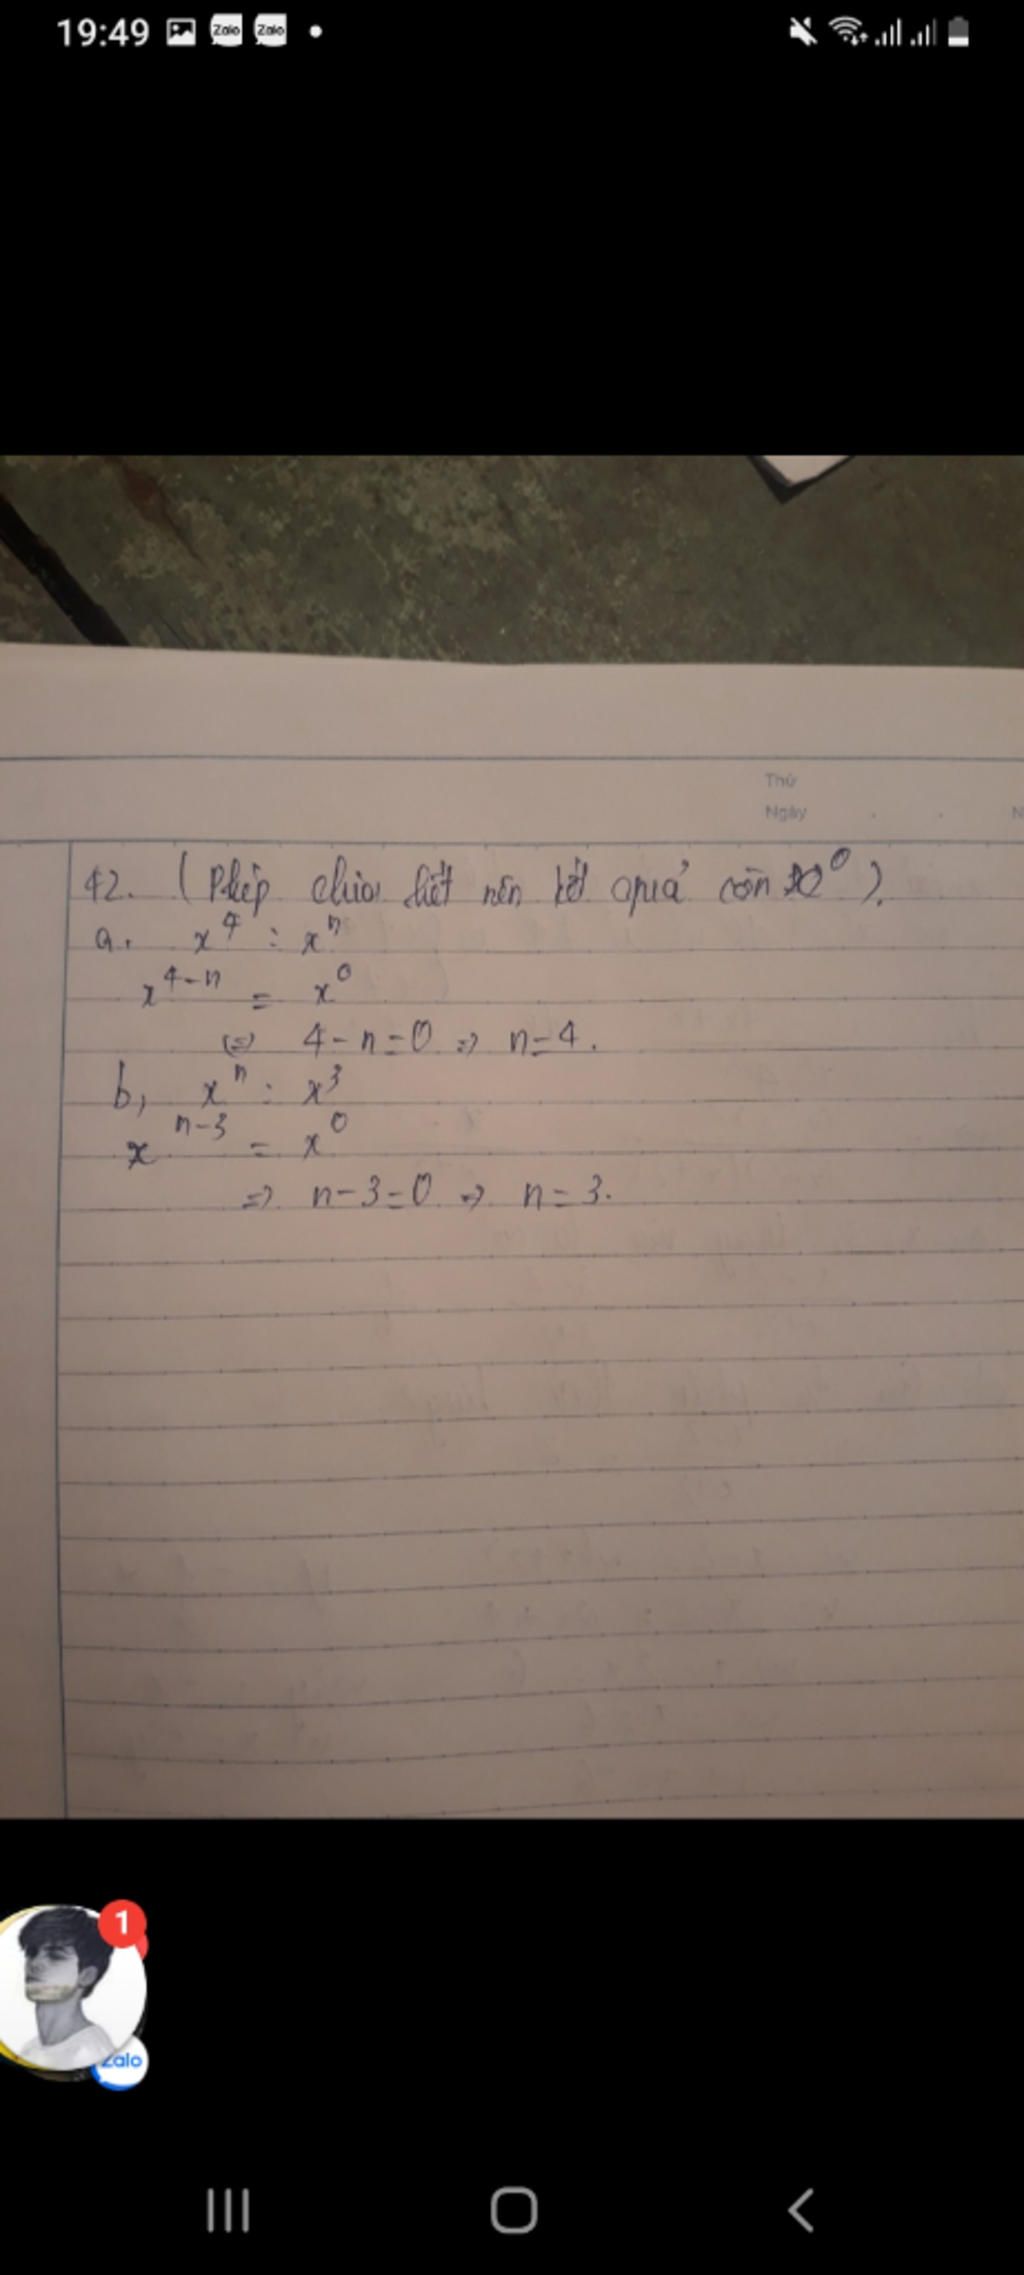 19:49 Zalo Zalo
Thứ
Ngày
N
42. (Phép chia hết nên kết quả còn x⁰).
a. x⁴ : xⁿ
x⁴⁻ⁿ = x⁰
(=) 4-n=0 => n=4.
b, xⁿ : x³
xⁿ⁻³ = x⁰
=> n-3=0 => n=3.
1
Zalo